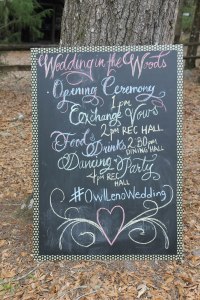 Wedding in the Woods
Opening Ceremony
1 pm
Exchange Vows
2 pm REC HALL
Food & Drinks 2:30 pm
DINING HALL
Dancing & Party
4 pm REC
HALL
#OwlLenoWedding